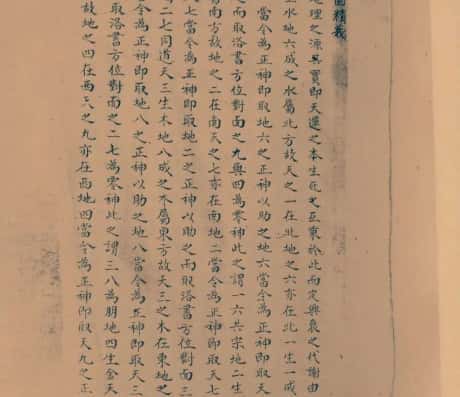 圖精義
地理之源其實即天運之本生死之於此而定興衰之代謝由
生水地六成之水屬北方故天之一在北地之六亦在北一生一成
當令為正神即取地六之正神以助之地六當令為正神即取天
之而取洛書方位對面之九與四為零神此之謂一六共宗地二生
南方故地之二在南天之七亦在南地二當令為正神即取天七
七當令為正神即取地二之正神以助之而取洛書方位對面三
為二七同道天三生木地八成之木屬東方故天三之木在東地之
令為正神即取地八之正神以助之地八當令為正神即取天三
取洛書方位對面之二七為零神此之謂三八為朋地四生金天
故地之四在西天之九亦在西地四當令為正神即取天九之正